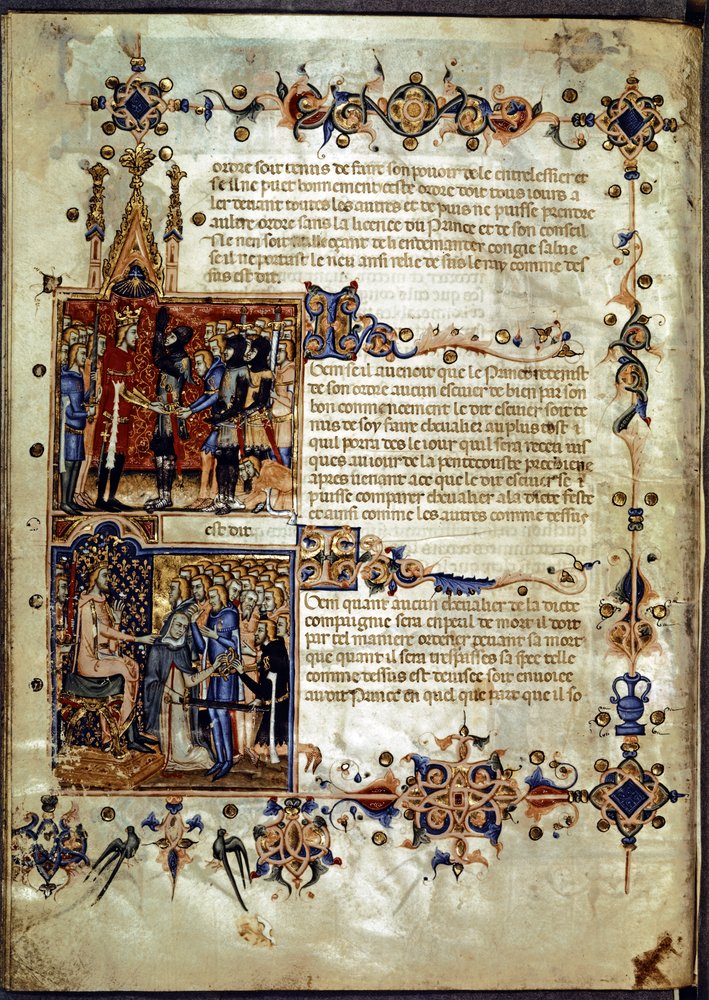 ordre soit tenus de faire son pouoir de le entrelessier et
se il ne puet bonnement ceste ordre doit tous iours a
ler deuant toutes les autres et de puis ne puisse prendre
aultre ordre sans la licence du Prance et de son conseil
se il ne portast le neu ansi relie de sus le ray comme des
sus est dit.
Item se il auenoit que le Prance retenist
de son ordre aucun escuier de bien par son
bon commencement le dit escuier soit te
nus de soy faire cheualier au plus tost &
quil porra des le iour quil sera receu ius
ques au iour de la pentecouste prochiene
apres uenant a ce que le dit escuier se
puisse comparer cheualier a la dicte feste
et ainsi comme les autres comme dessus
est dit
Item quant aucun cheualier de la dicte
compaignie sera en peul de mort il doit
par tel maniere ordener deuant sa mort
que quant il sera trespasses sa spee telle
comme dessus est deuisee soit enuoiee
au dit Prance en quel que part que il so